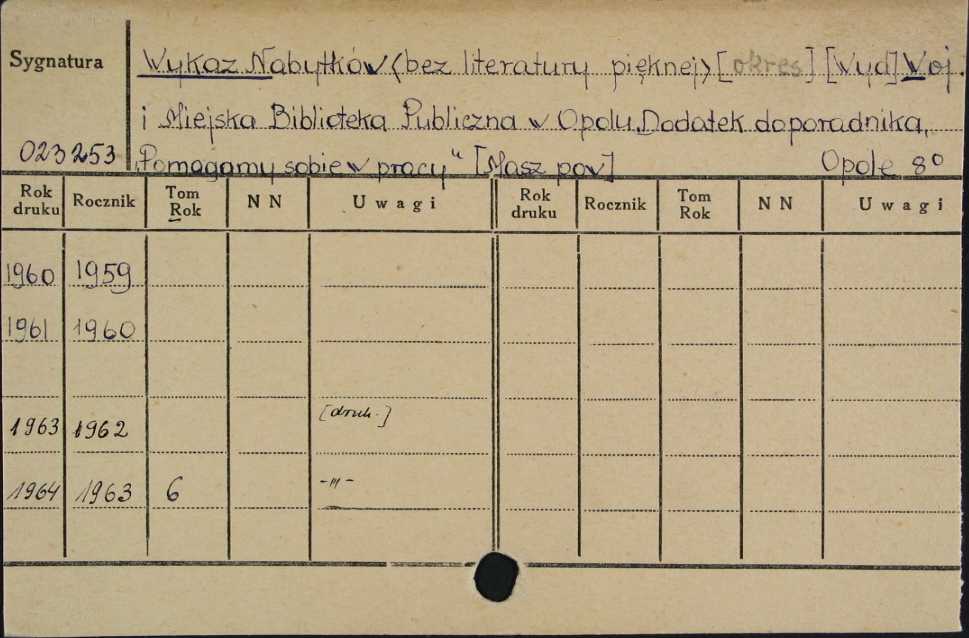 Sygnatura
Wykaz Nabytków (bez literatury pięknej) [okres] [Wyd] Woj.
i Miejska Biblioteka Publiczna w Opolu. Dodatek do poradnika
023253 „Pomagamy sobie w pracy" [Masz pow] Opole 8°
Rok druku Rocznik Tom Rok N N Uwagi Rok druku Rocznik Tom Rok N N Uwagi
1960 1959
1961 1960
1963 1962 [druk.]
1964 1963 6 -"-